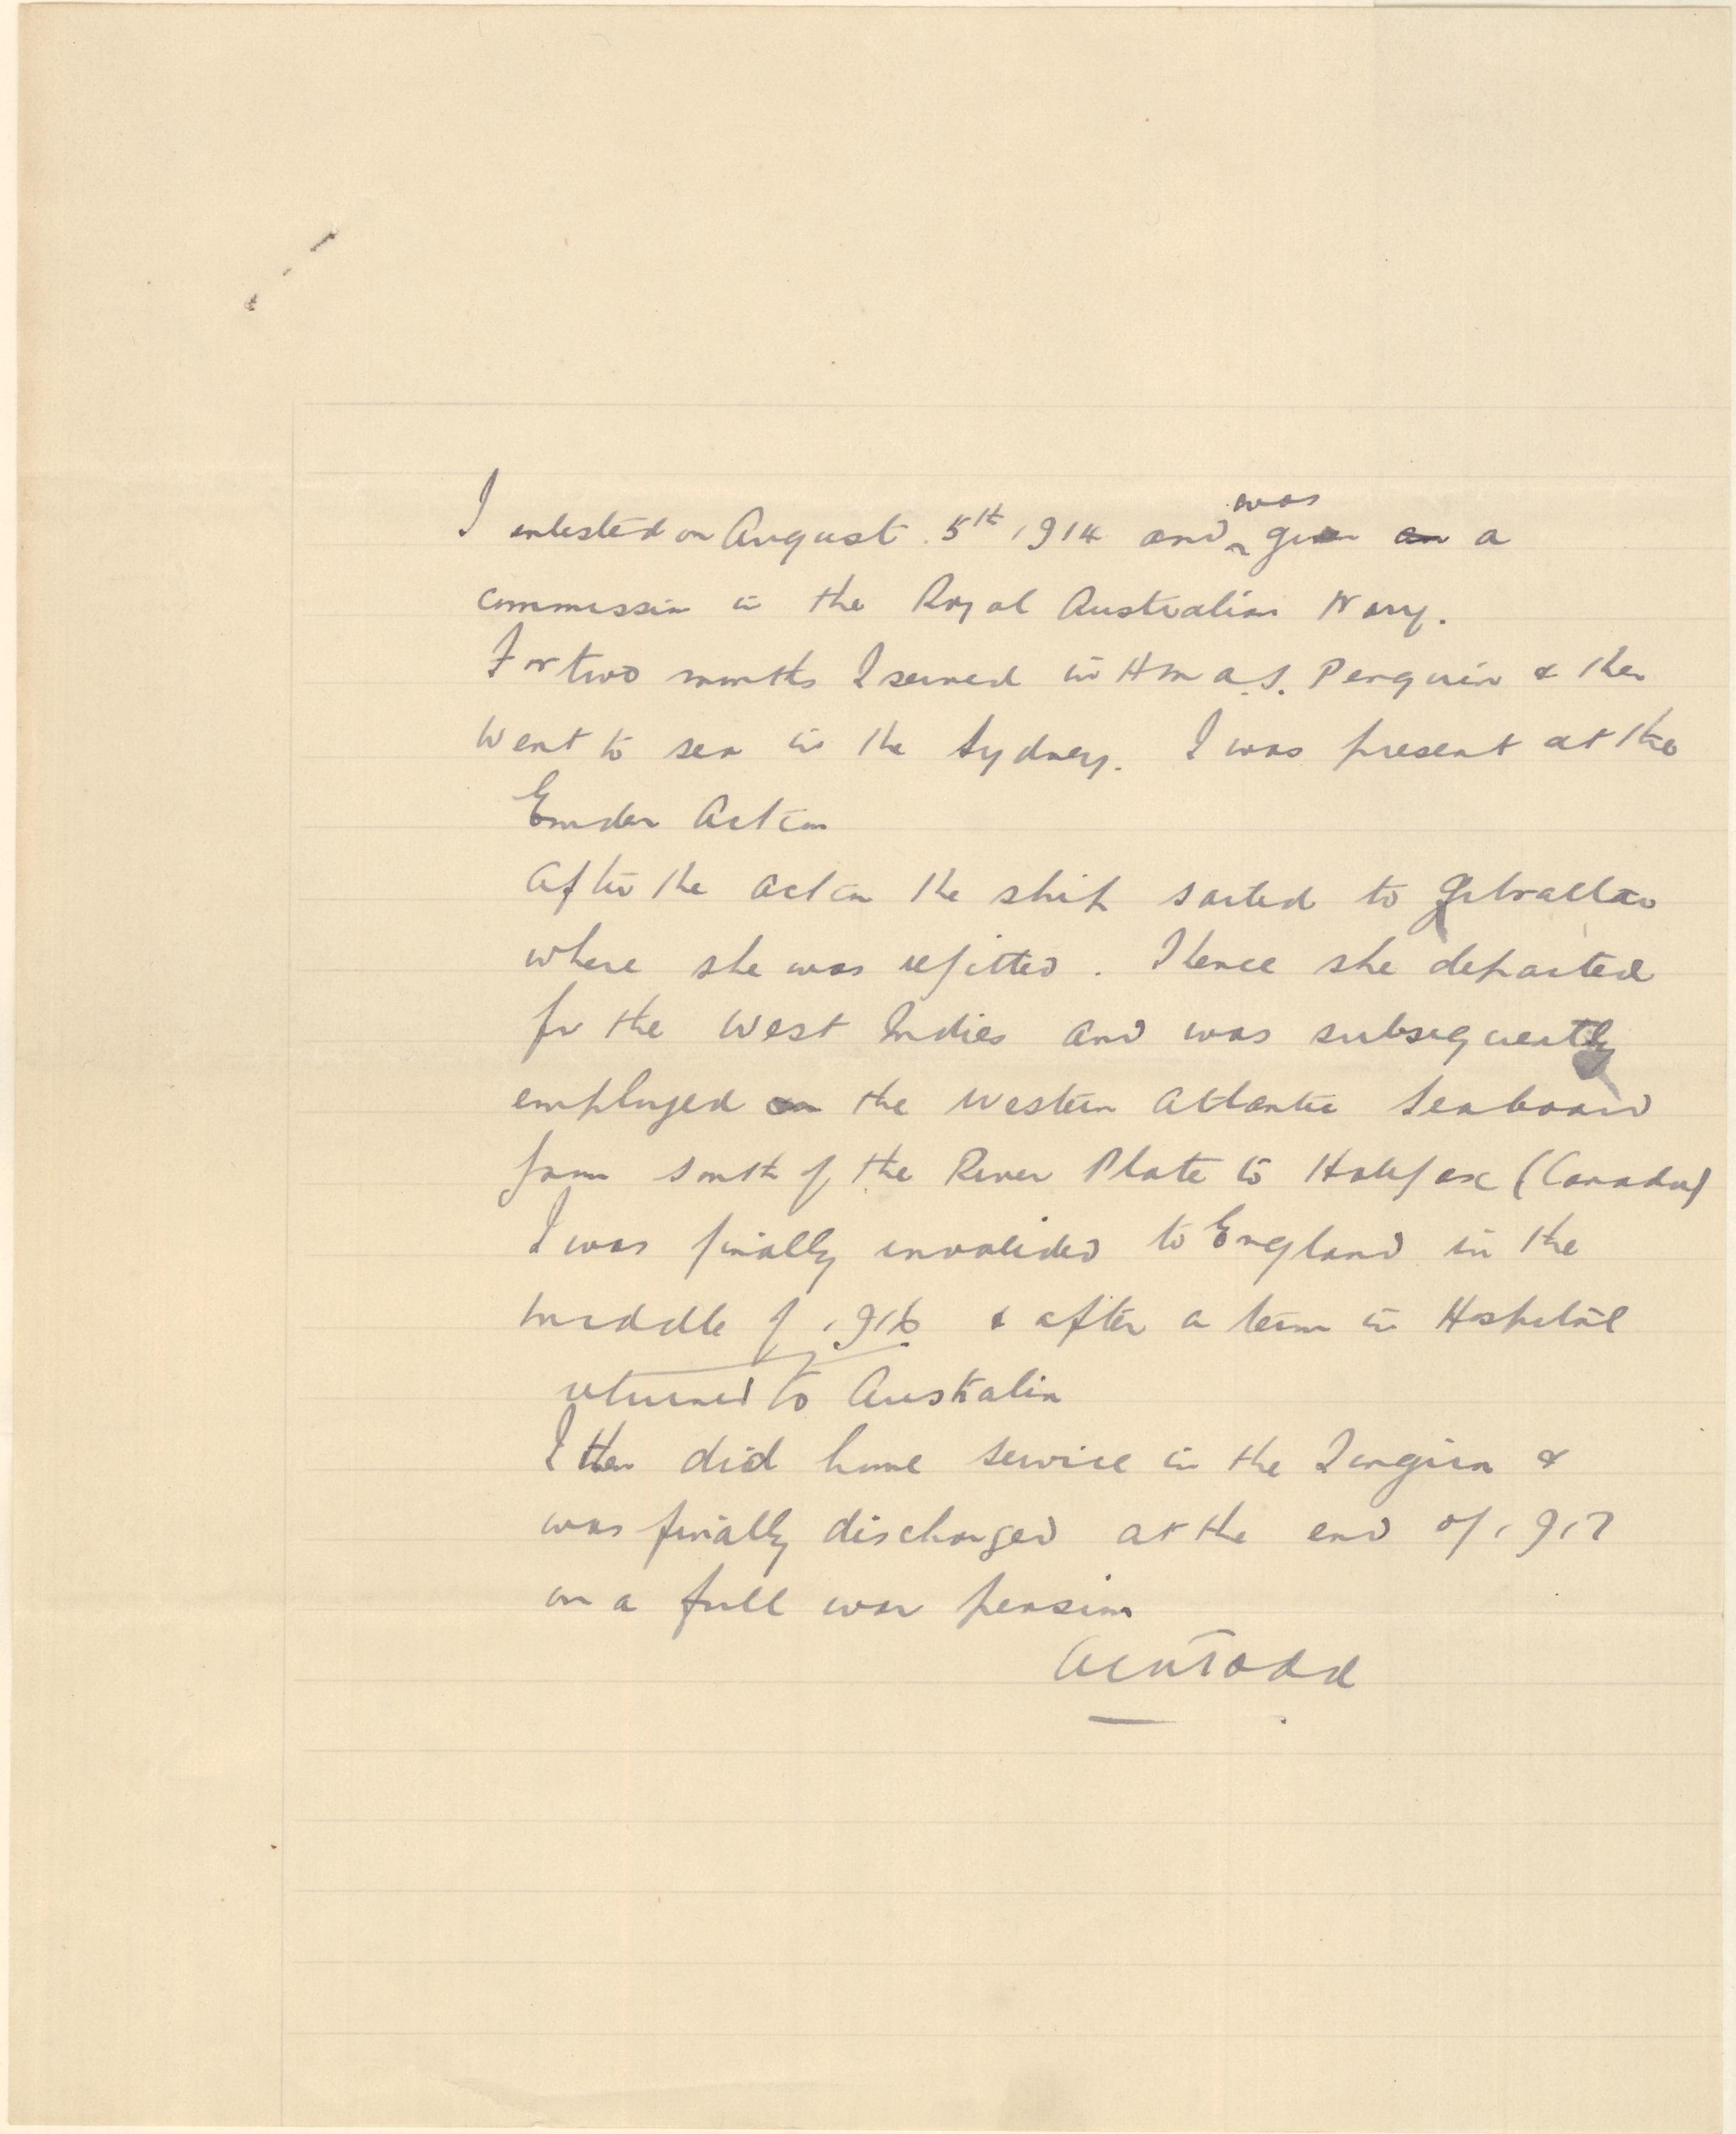 I enlisted on August 5th 1914 and was given a
commission in the Royal Australian Navy.
For two months I served in H m a. S. Penguin & then
went to sea in the Sydney. I was present at the
Emden Action
After the action the ship sailed to Gibraltar
where she was refitted. Thence she departed
for the West Indies and was subsequently
employed on the western Atlantic Seaboard
from south of the River Plate to Halifax (Canada)
I was finally invalided to England in the
middle of 1916 & after a term in Hospital
returned to Australia
I then did home service in the Tingira &
was finally discharged at the end of 1917
on a full war pension
Todd